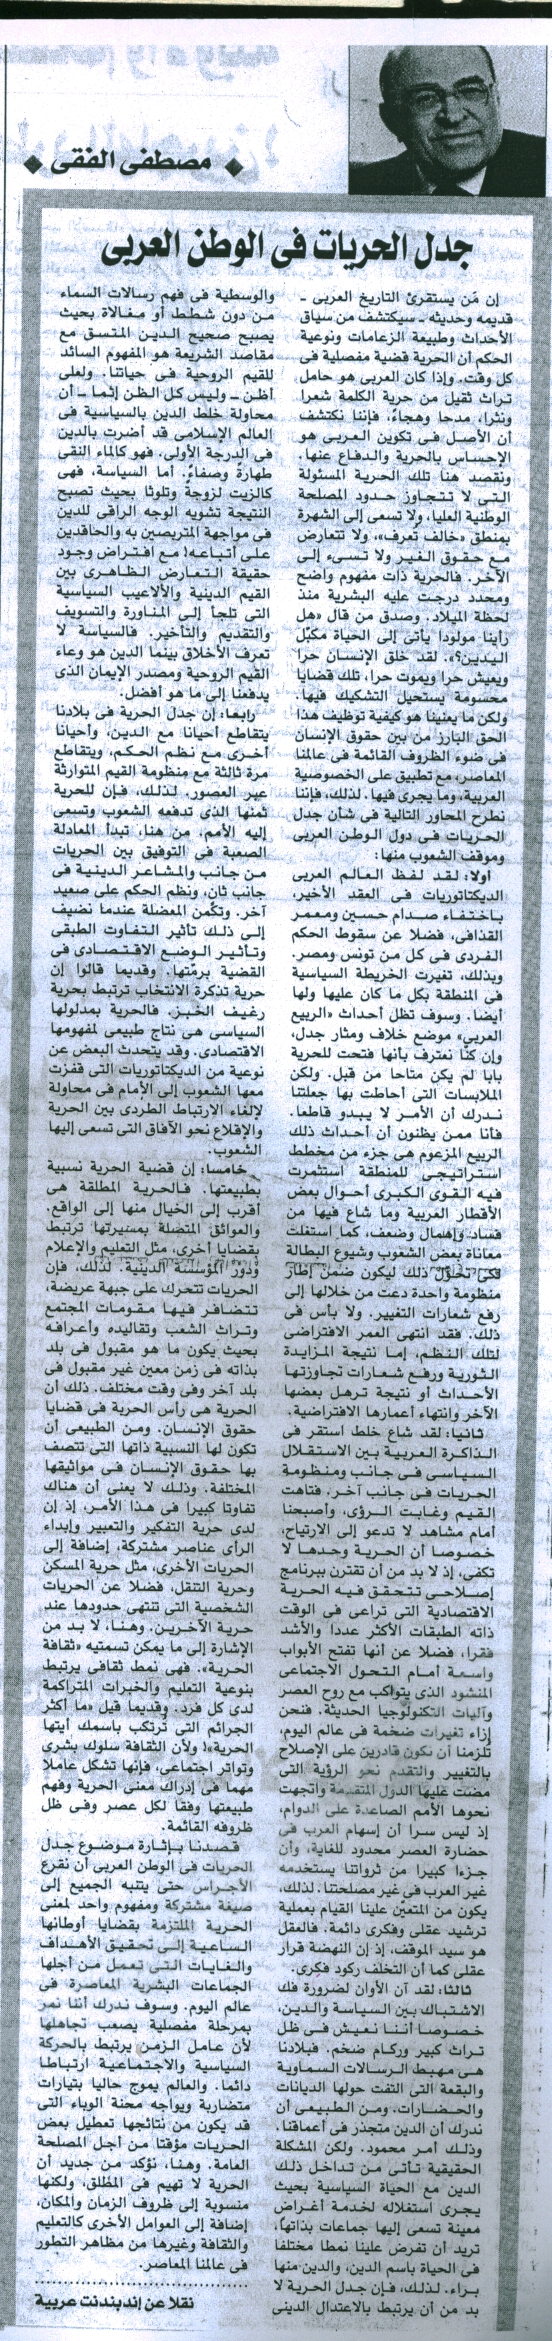 مصطفى الفقى
جدل الحريات فى الوطن العربى
إن مَن يستقرئ التاريخ العربى ـ
قديمه وحديثه ـ سيكتشف من سياق
الأحداث وطبيعة الزعامات ونوعية
الحكم أن الحرية قضية مفصلية فى
كل وقت. وإذا كان العربى هو حامل
تراث ثقيل من حرية الكلمة شعرا
ونثرا، مدحا وهجاءً، فإننا نكتشف
أن الأصل فى تكوين العربى هو
الإحساس بالحرية والدفاع عنها.
ونقصد هنا تلك الحرية المسئولة
التى لا تتجاوز حدود المصلحة
الوطنية العليا، ولا تسعى إلى الشهرة
بمنطق «خالف تعرف»، ولا تتعارض
مع حقوق الغير ولا تسىء إلى
الآخر. فالحرية ذات مفهوم واضح
ومحدد درجت عليه البشرية منذ
لحظة الميلاد. وصدق من قال «هل
رأينا مولودا يأتى إلى الحياة مكبّل
اليدين؟». لقد خلق الإنسان حرا
ويعيش حرا ويموت حرا، تلك قضايا
محسومة يستحيل التشكيك فيها.
ولكن ما يعنينا هو كيفية توظيف هذا
الحق البارز من بين حقوق الإنسان
فى ضوء الظروف القائمة فى عالمنا
المعاصر، مع تطبيق على الخصوصية
العربية، وما يجرى فيها. لذلك، فإننا
نطرح المحاور التالية فى شأن جدل
الحريات فى دول الوطن العربى
وموقف الشعوب منها:
أولا: لقد لفظ العالم العربى
الديكتاتوريات فى العقد الأخير،
باختفاء صدام حسين ومعمر
القذافى، فضلا عن سقوط الحكم
الفردى فى كل من تونس ومصر.
وبذلك، تغيرت الخريطة السياسية
فى المنطقة بكل ما كان عليها ولها
أيضا. وسوف تظل أحداث «الربيع
العربى» موضع خلاف ومثار جدل،
وإن كنا نعترف بأنها فتحت للحرية
بابا لم يكن متاحا من قبل. ولكن
الملابسات التى أحاطت بها جعلتنا
ندرك أن الأمر لا يبدو قاطعا.
فأنا ممن يظنون أن أحداث ذلك
الربيع المزعوم هى جزء من مخطط
استراتيجى للمنطقة استثمرت
فيه القوى الكبرى أحوال بعض
الأقطار العربية وما شاع فيها من
فساد وإهمال وضعف، كما استغلت
معاناة بعض الشعوب وشيوع البطالة
لكى تحوّل ذلك ليكون ضمن إطار
منظومة واحدة دعت من خلالها إلى
رفع شعارات التغيير. ولا بأس فى
ذلك. فقد انتهى العمر الافتراضى
لتلك النظم، إما نتيجة المزايدة
الثورية ورفع شعارات تجاوزتها
الأحداث أو نتيجة ترهل بعضها
الآخر وانتهاء أعمارها الافتراضية.
ثانيا: لقد شاع خلط استقر فى
الذاكرة العربية بين الاستقلال
السياسى فى جانب ومنظومة
الحريات فى جانب آخر. فتاهت
القيم وغابت الرؤى، وأصبحنا
أمام مشاهد لا تدعو إلى الارتياح،
خصوصا أن الحرية وحدها لا
تكفى، إذ لا بد من أن تقترن ببرنامج
إصلاحى تتحقق فيه الحرية
الاقتصادية التى تراعى فى الوقت
ذاته الطبقات الأكثر عددا والأشد
فقرا، فضلا عن أنها تفتح الأبواب
واسعة أمام التحول الاجتماعى
المنشود الذى يتواكب مع روح العصر
وآليات التكنولوجيا الحديثة. فنحن
إزاء تغيرات ضخمة فى عالم اليوم،
تلزمنا أن نكون قادرين على الإصلاح
بالتغيير والتقدم نحو الرؤية التى
مضت عليها الدول المتقدمة واتجهت
نحوها الأمم الصاعدة على الدوام،
إذ ليس سرا أن إسهام العرب فى
حضارة العصر محدود للغاية، وأن
جزءا كبيرا من ثرواتنا يستخدمه
غير العرب فى غير مصلحتنا. لذلك،
يكون من المتعيّن علينا القيام بعملية
ترشيد عقلى وفكرى دائمة. فالعقل
هو سيد الموقف، إذ إن النهضة قرار
عقلى كما أن التخلف ركود فكرى.
ثالثا: لقد آن الأوان لضرورة فك
الاشتباك بين السياسة والدين،
خصوصا أننا نعيش فى ظل
تراث كبير وركام ضخم. فبلادنا
هى مهبط الرسالات السماوية
والبقعة التى التفت حولها الديانات
والحضارات. ومن الطبيعى أن
ندرك أن الدين متجذر فى أعماقنا.
وذلك أمر محمود. ولكن المشكلة
الحقيقية تأتى من تداخل ذلك
الدين مع الحياة السياسية بحيث
يجرى استغلاله لخدمة أغراض
معينة تسعى إليها جماعات بذاتها،
تريد أن تفرض علينا نمطا مختلفا
فى الحياة باسم الدين، والدين منها
براء. لذلك، فإن جدل الحرية لا
بد من أن يرتبط بالاعتدال الدينى
والوسطية فى فهم رسالات السماء
من دون شطط أو مغالاة بحيث
يصبح صحيح الدين المتسق مع
مقاصد الشريعة هو المفهوم السائد
للقيم الروحية فى حياتنا. ولعلى
أظن ـ وليس كل الظن إثما ـ أن
محاولة خلط الدين بالسياسية فى
العالم الإسلامى قد أضرت بالدين
فى الدرجة الأولى. فهو كالماء النقى
طهارةً وصفاءً. أما السياسة، فهى
كالزيت لزوجةً وتلوثا بحيث تصبح
النتيجة تشويه الوجه الراقى للدين
فى مواجهة المتربصين به والحاقدين
على أتباعه! مع افتراض وجود
حقيقة التعارض الظاهرى بين
القيم الدينية والألاعيب السياسية
التى تلجأ إلى المناورة والتسويف
والتقديم والتأخير. فالسياسة لا
تعرف الأخلاق بينما الدين هو وعاء
القيم الروحية ومصدر الإيمان الذى
يدفعنا إلى ما هو أفضل.
رابعا: إن جدل الحرية فى بلادنا
يتقاطع أحيانا مع الدين، وأحيانا
أخرى مع نظم الحكم، ويتقاطع
مرة ثالثة مع منظومة القيم المتوارثة
عبر العصور. لذلك، فإن للحرية
ثمنها الذى تدفعه الشعوب وتسعى
إليه الأمم، من هنا، تبدأ المعادلة
الصعبة فى التوفيق بين الحريات
من جانب والمشاعر الدينية فى
جانب ثان، ونظم الحكم على صعيد
آخر. وتكمن المعضلة عندما نضيف
إلى ذلك تأثير التفاوت الطبقى
وتأثير الوضع الاقتصادى فى
القضية برمّتها. وقديما قالوا إن
حرية تذكرة الانتخاب ترتبط بحرية
رغيف الخبز. فالحرية بمدلولها
السياسى هى نتاج طبيعى لمفهومها
الاقتصادى. وقد يتحدث البعض عن
نوعية من الديكتاتوريات التى قفزت
معها الشعوب إلى الأمام فى محاولة
لإلغاء الارتباط الطردى بين الحرية
والإقلاع نحو الآفاق التى تسعى إليها
الشعوب.
خامسا: إن قضية الحرية نسبية
بطبيعتها. فالحرية المطلقة هى
أقرب إلى الخيال منها إلى الواقع.
والعوائق المتصلة بمسيرتها ترتبط
بقضايا أخرى، مثل التعليم والإعلام
ودور المؤسسة الدينية. لذلك، فإن
الحريات تتحرك على جبهة عريضة،
تتضافر فيها مقومات المجتمع
وتراث الشعب وتقاليده وأعرافه
بحيث يكون ما هو مقبول فى بلد
بذاته فى زمن معين غير مقبول فى
بلد آخر وفى وقت مختلف. ذلك أن
الحرية هى رأس الحربة فى قضايا
حقوق الإنسان. ومن الطبيعى أن
تكون لها النسبية ذاتها التى تتصف
بها حقوق الإنسان فى مواثيقها
المختلفة. وذلك لا يعنى أن هناك
تفاوتا كبيرا فى هذا الأمر، إذ إن
لدى حرية التفكير والتعبير وإبداء
الرأى عناصر مشتركة، إضافة إلى
الحريات الأخرى، مثل حرية المسكن
وحرية التنقل، فضلا عن الحريات
الشخصية التى تنتهى حدودها عند
حرية الآخرين. وهنا، لا بد من
الإشارة إلى ما يمكن تسميته «ثقافة
الحرية». فهى نمط ثقافى يرتبط
بنوعية التعليم والخبرات المتراكمة
لدى كل فرد. وقديما قيل «ما أكثر
الجرائم التى تُرتكب باسمك أيتها
الحرية»! ولأن الثقافة سلوك بشرى
وتواتر اجتماعى، فإنها تشكل عاملا
مهما فى إدراك معنى الحرية وفهم
طبيعتها وفقا لكل عصر وفى ظل
ظروفه القائمة.
قصدنا بإثارة موضوع جدل
الحريات فى الوطن العربى أن نقرع
الأجراس حتى يتنبه الجميع إلى
صيغة مشتركة ومفهوم واحد لمعنى
الحرية الملتزمة بقضايا أوطانها
الساعية إلى تحقيق الأهداف
والغايات التى تعمل من أجلها
الجماعات البشرية المعاصرة فى
عالم اليوم. وسوف ندرك أننا نمر
بمرحلة مفصلية يصعب تجاهلها
لأن عامل الزمن يرتبط بالحركة
السياسية والاجتماعية ارتباطا
دائما. والعالم يموج حاليا بتيارات
متضاربة ويواجه محنة الوباء التى
قد يكون من نتائجها تعطيل بعض
الحريات مؤقتا من أجل المصلحة
العامة. وهنا، نؤكد من جديد أن
الحرية لا تهيم فى المُطلق، ولكنها
منسوبة إلى ظروف الزمان والمكان،
إضافة إلى العوامل الأخرى كالتعليم
والثقافة وغيرها من مظاهر التطور
فى عالمنا المعاصر.
نقلا عن إندبندنت عربية